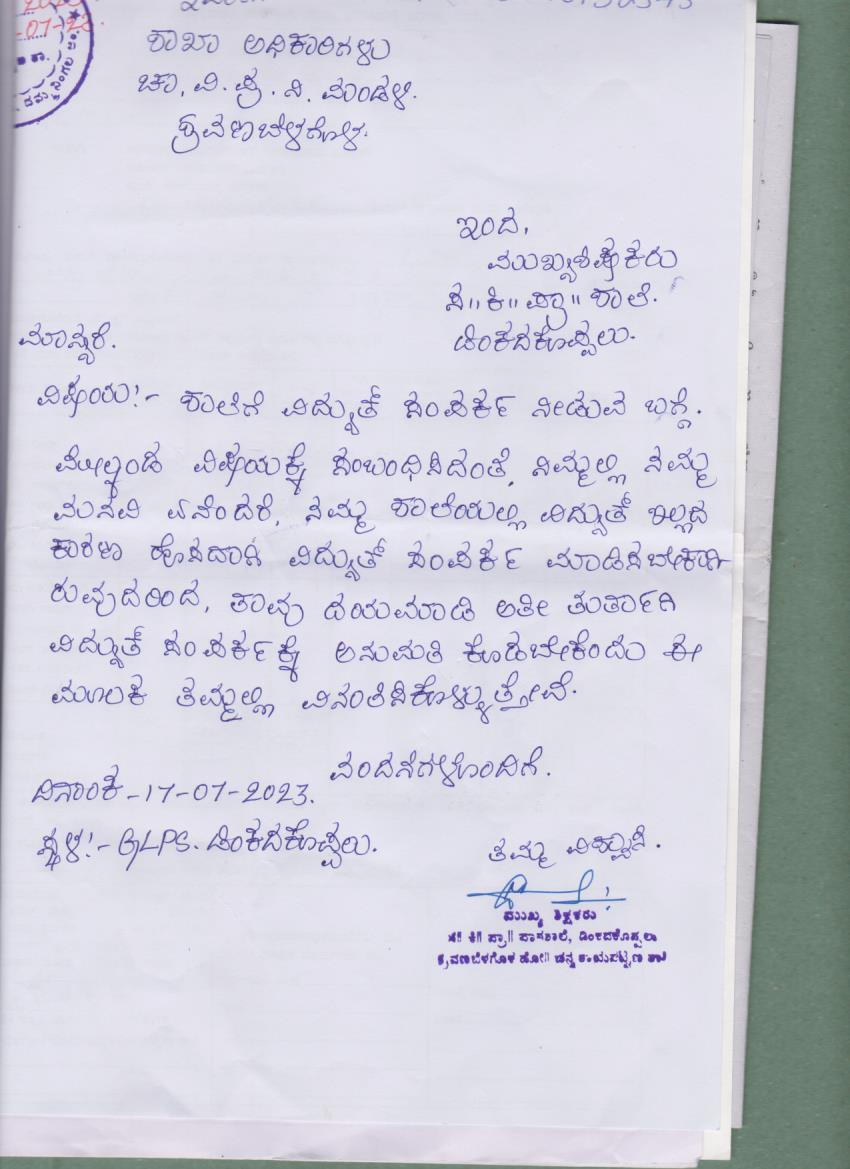 ಶಾಖಾ ಅಧಿಕಾರಿಗಳು
ಚಾ. ವಿ. ಪ್ರ. ನಿ. ಮಂಡಳಿ.
ಶ್ರವಣಬೆಳಗೊಳ.
ಇಂದ,
ಮುಖ್ಯಶಿಕ್ಷಕರು
ಸ॥ ಕಿ॥ ಪ್ರಾ॥ ಶಾಲೆ.
ಡಿಂಕದಕೊಪ್ಪಲು.
ಮಾನ್ಯರೆ.
ವಿಷಯ:- ಶಾಲೆಗೆ ವಿದ್ಯುತ್ ಸಂಪರ್ಕ ನೀಡುವ ಬಗ್ಗೆ.
ಮೇಲ್ಕಂಡ ವಿಷಯಕ್ಕೆ ಸಂಬಂಧಿಸಿದಂತೆ, ನಿಮ್ಮಲ್ಲಿ ನಮ್ಮ
ಮನವಿ ಏನೆಂದರೆ, ನಮ್ಮ ಶಾಲೆಯಲ್ಲಿ ವಿದ್ಯುತ್ ಇಲ್ಲದ
ಕಾರಣ ಹೊಸದಾಗಿ ವಿದ್ಯುತ್ ಸಂಪರ್ಕ ಮಾಡಿಸಬೇಕಾಗಿ
ರುವುದರಿಂದ, ತಾವು ದಯಮಾಡಿ ಅತೀ ತುರ್ತಾಗಿ
ವಿದ್ಯುತ್ ಸಂಪರ್ಕಕ್ಕೆ ಅನುಮತಿ ಕೊಡಬೇಕೆಂದು ಈ
ಮೂಲಕ ತಮ್ಮಲ್ಲಿ ವಿನಂತಿಸಿಕೊಳ್ಳುತ್ತೇವೆ.
ವಂದನೆಗಳೊಂದಿಗೆ.
ದಿನಾಂಕ-17-07-2023.
ಸ್ಥಳ:- GLPS. ಡಿಂಕದಕೊಪ್ಪಲು.
ತಮ್ಮ ವಿಶ್ವಾಸಿ.
ಮುಖ್ಯ ಶಿಕ್ಷಕರು
ಸ॥ ಕಿ॥ ಪ್ರಾ॥ ಪಾಠಶಾಲೆ, ಡಿಂಕದಕೊಪ್ಪಲು
ಶ್ರವಣಬೆಳಗೊಳ ಹೋ॥ ಚನ್ನರಾಯಪಟ್ಟಣ ತಾ॥